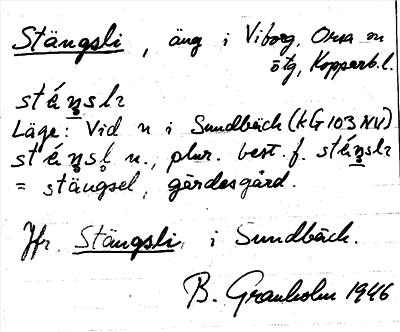 Stängsli, äng i Viborg, Orsa sn
ötg, Kopparb.l.
stä́ŋslɩ
Läge: Vid n i Sundbäck (KG103NV)
stä́ŋsl̥ n., plur. best. f. stä́ŋslɩ
= stängsel, gärdesgård.
Jfr Stängsli i Sundbäck.
B. Granholm 1946